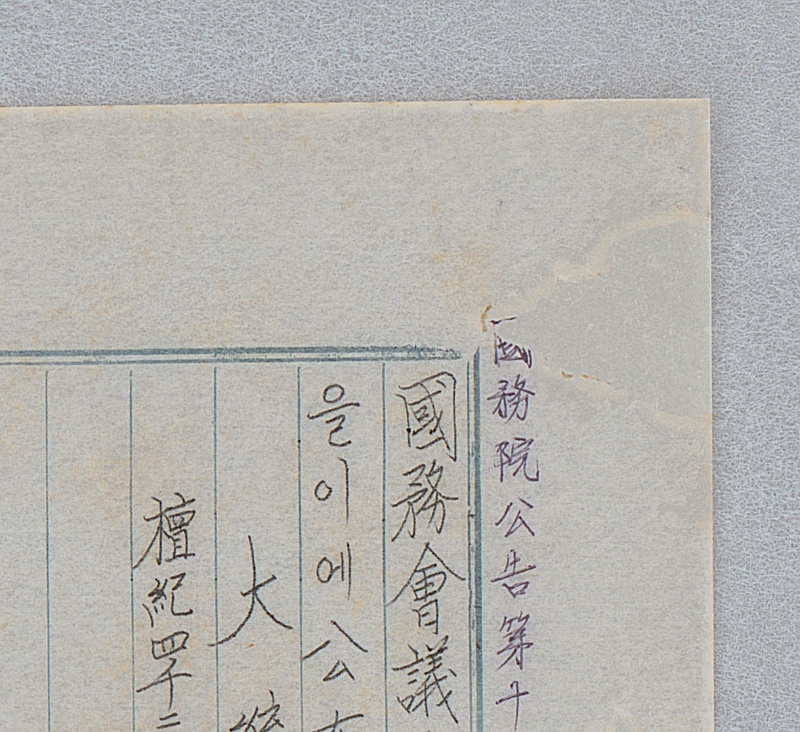 國務院公告第十
國務會議
을이에公布
大統
檀紀四千二